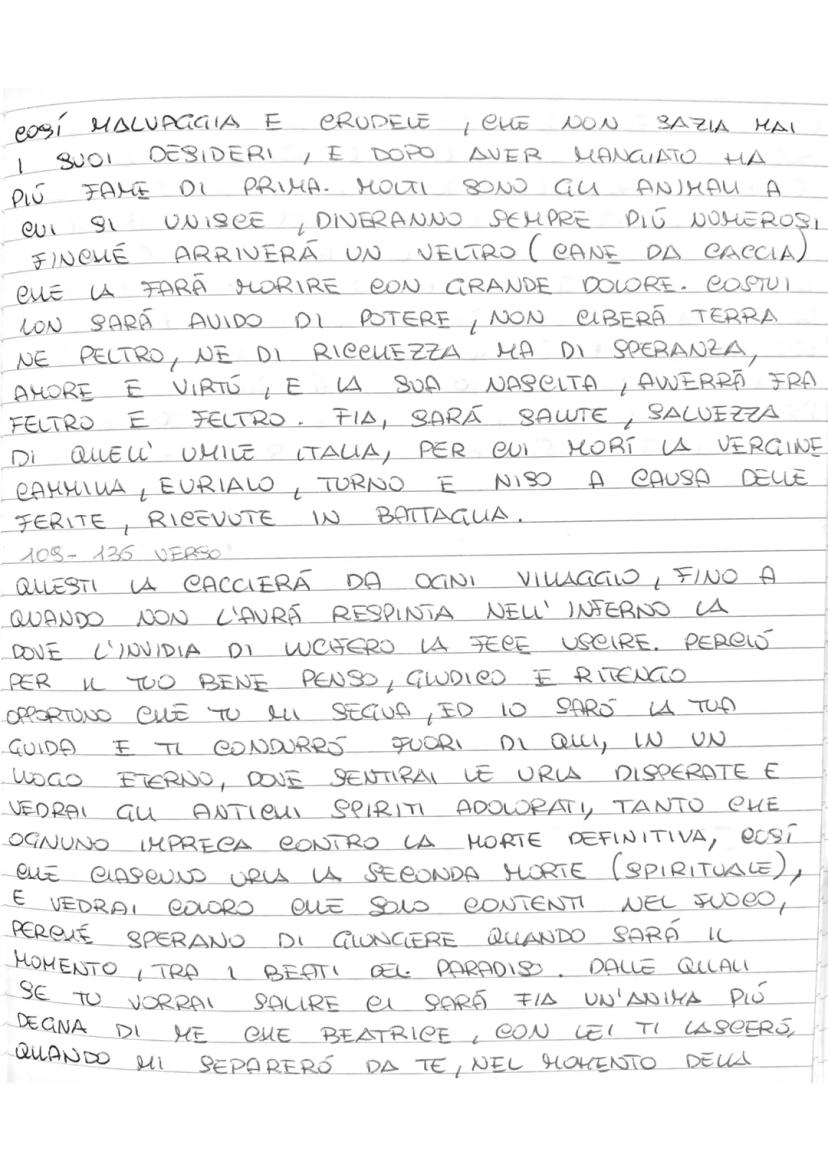 COSÍ MALVAGGIA E CRUDELE, CHE NON SAZIA MAI
I SUOI DESIDERI, E DOPO AVER MANGIATO HA
PIÚ FAME DI PRIMA. MOLTI SONO GLI ANIMALI A
CUI SI UNISCE, DIVERANNO SEMPRE PIÚ NUMEROSI,
FINCHÉ ARRIVERÁ UN VELTRO (CANE DA CACCIA)
CHE LA FARÁ MORIRE CON GRANDE DOLORE. COSTUI
NON SARÁ AVIDO DI POTERE, NON CIBERÁ TERRA
NE PELTRO, NE DI RICCHEZZA MA DI SPERANZA,
AMORE E VIRTÚ, E LA SUA NASCITA, AVVERRÁ FRA
FELTRO E FELTRO. FIA, SARÁ SALUTE, SALVEZZA
DI QUELL' UMILE ITALIA, PER CUI MORÍ LA VERGINE
CAMMILLA, EURIALO, TURNO E NISO A CAUSA DELLE
FERITE, RICEVUTE IN BATTAGLIA.
109-136 VERSO
QUESTI LA CACCIERÁ DA OGNI VILLAGGIO, FINO A
QUANDO NON L'AVRÁ RESPINTA NELL' INFERNO LA
DOVE L'INVIDIA DI LUCIFERO LA FECE USCIRE. PERCIÓ
PER IL TUO BENE PENSO, GIUDICO E RITENGO
OPPORTUNO CHE TU MI SEGUA, ED IO SARÓ LA TUA
GUIDA E TI CONDURRÓ FUORI DI QUI, IN UN
LUOGO ETERNO, DOVE SENTIRAI LE URLA DISPERATE E
VEDRAI GLI ANTICHI SPIRITI ADOLORATI, TANTO CHE
OGNUNO IMPRECA CONTRO LA MORTE DEFINITIVA, COSÍ
CHE CIASCUNO URLA LA SECONDA MORTE (SPIRITUALE),
E VEDRAI COLORO CHE SOLO CONTENTI NEL FUOCO,
PERCHÉ SPERANO DI GIUNGERE QUANDO SARÁ IL
MOMENTO, TRA I BEATI DEL PARADISO. DALLE QUALI
SE TU VORRAI SALIRE CI SARÁ FIA UN'ANIMA PIÚ
DEGNA DI ME CHE BEATRICE, CON LEI TI LASCERÓ,
QUANDO MI SEPARERÓ DA TE, NEL MOMENTO DELLA